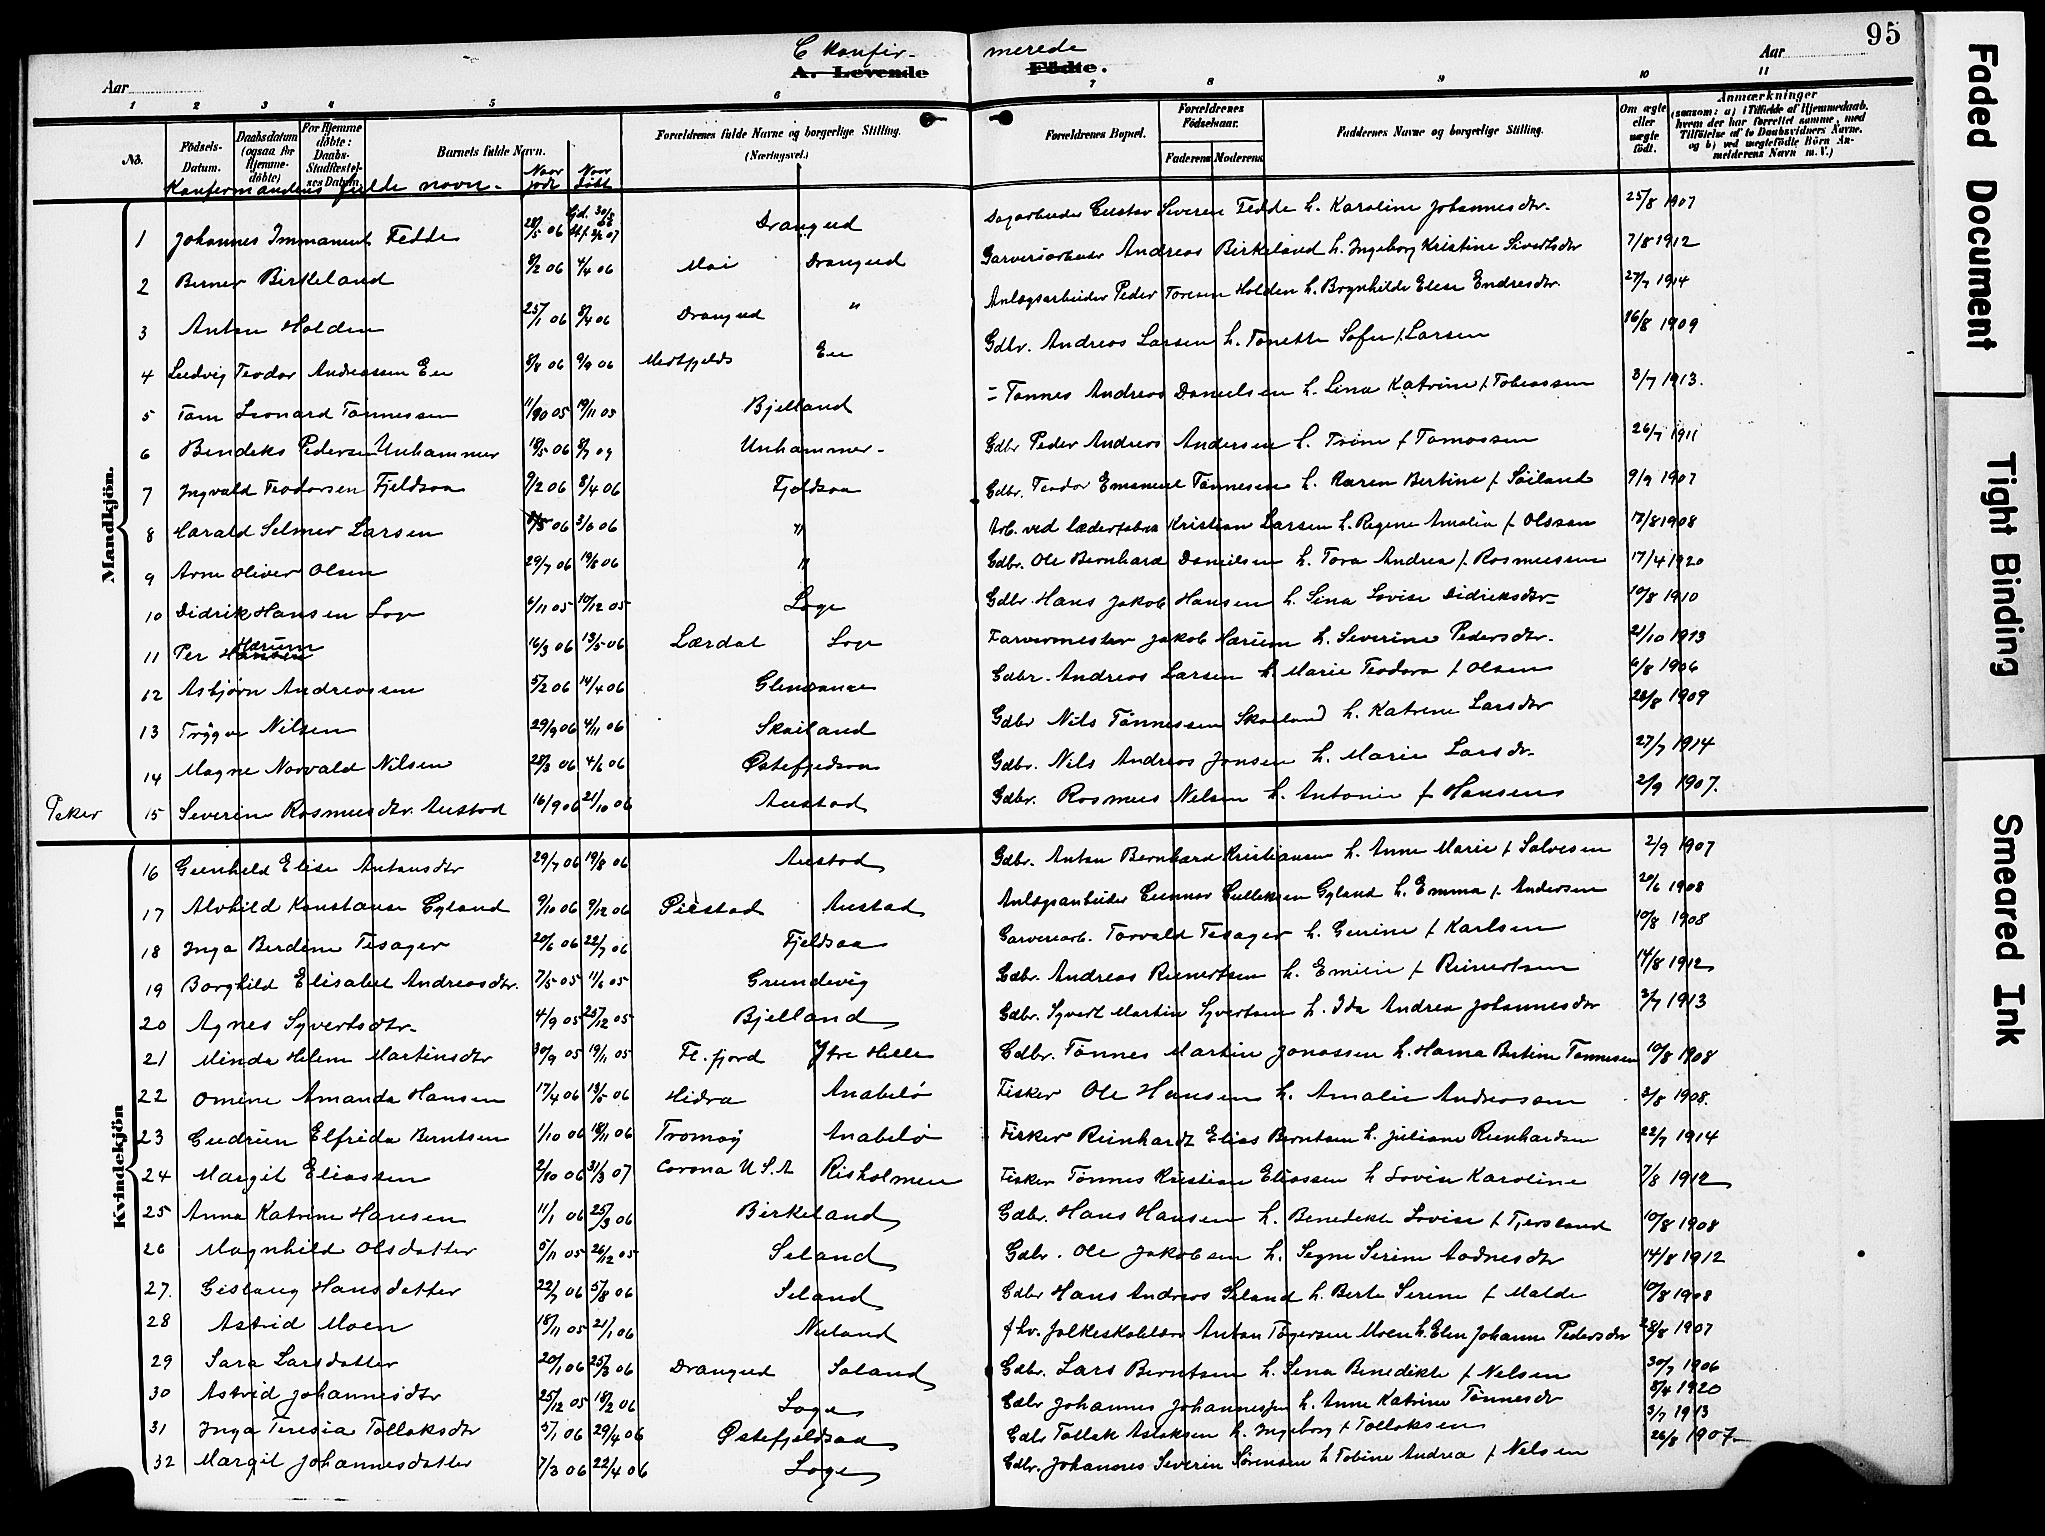 95
C Konfir- merede
A. Levende Fødte.
Aar Aar
1 2 3 4 5 6 7 8 9 10 11
No. Fødsels-Datum. Daabsdatum (ogsaa for Hjemmedøbte) For Hjemmedøbte: Daabs-Stadfæstelses Datum. Barnets fulde Navn. Forældrenes fulde Navne og borgerlige Stilling. (Næringsvei.) Forældrenes Bopæl. Forældrenes Fødselsaar. Faderens Moderens Faddernes Navne og borgerlige Stilling. Om ægte eller uægte født. Anmærkninger (saasom: a) i Tilfælde af Hjemmedaab, hvem der har forrettet samme, med Tilføielse af to Daabsvidners Navne, og b) ved uægtefødte Børn Anmelderens Navn m. V.)
Konfirmandens fulde navn. Naar født Naar døbt
Mandkjøn.
1 Johannes Immanuel Fedde 28/5 06 Drangeid Dagarbeider Gustav Severin Fedde h. Karoline Johannesdtr. 25/8 1907
2 Berner Birkeland 8/2 06 4/4 06 Moi Drangeid Garveriarbeider Andreas Birkeland h. Ingeborg Kristine Sivertsdtr 7/8 1912
3 Anton Holden 25/1 06 8/4 06 Drangeid " Anlægsarbeider Peder Toresen Holden h. Brynhilde Elise Endresdtr. 27/7 1914
4 Ludvig Teodor Andreassen Eie 8/8 06 9/9 06 Eie Gdbr. Andreas Larsen h. Tonette Sofie f. Larsen 16/8 1909
5 Tom Leonard Tønnessen 11/10 05 19/11 05 Bjelland = Tønnes Andreas Danielsen h. Lina Katrine f. Tobiassen 3/7 1913.
6 Bendiks Pedersen Unhammer 18/5 06 8/7 09 Unhammer- Gdbr Peder Andreas Andersen h. Trine f Tomassen 26/7 1911
7 Ingvald Teodorsen Fjeldsaa 9/2 06 8/4 06 Fjeldsaa Gdbr. Teodor Emanuel Tønnesen h. Karen Bertine f Søiland 9/9 1907
8 Harald Selmer Larsen 3/6 06 " Arb. ved læderfabrik Kristian Larsen h. Regine Amalie f Olsson 13/8 1908
9 Arne Oliver Olsen 29/7 06 19/8 06 " Gdbr. Ole Bernhard Danielsen h. Tora Andrea f. Rasmussen 17/4 1920
10 Didrik Hansen Loge 6/11 05 10/12 05 Loge Gdbr. Hans Jakob Hansen h. Sina Lovise Didriksdtr- 10/8 1910
11 Per Hansen Hærum 16/3 06 13/5 06 Lærdal Loge Farvermester Jakob Hærum h. Severine Pedersdtr. 21/10 1913
12 Asbjørn Andreassen 5/2 06 14/4 06 Glendrange Gdbr. Andreas Larsen h Marie Teodora f Olsen 6/8 1906
13 Trygve Nilsen 29/9 06 4/11 06 Skailand Gdbr Nils Tønnessen Skailand h. Katrine Larsdtr 28/8 1909
14 Magne Norvald Nilsen 28/3 06 4/6 06 Østefjeldsaa Gdbr. Nils Andreas Jonsen h. Marie Larsdr. 27/7 1914
Piker 15 Severine Rasmusdtr. Austad 16/9 06 21/10 06 Austad Gdbr. Rasmus Nilsen h. Antonie f Hansen 2/9 1907.
Kvindekjøn
16 Gunhild Elise Antonsdtr 29/7 06 19/8 06 Austad Gdbr. Anton Bernhard Kristiansen h. Anne Marie f Salvesen 2/9 1907
17 Alvhild Konstanse Gyland 9/10 06 9/12 06 Austad Anlægsarbeider Gunnar Gulleksen Gyland h. Emma f. Andersen 20/6 1908
18 Inga Berdine Tesager 20/6 06 22/7 06 Fjeldsaa Garveriarb. Torvald Tesager h. Gurine f Karlsen 10/8 1908
19 Borghild Elisabet Andreasdtr. 7/5 05 11/6 05 Grundevig Gdbr. Andreas Reinertsen h. Emilie f Reinertsen 14/8 1912
20 Agnes Syvertsdtr. 4/9 05 25/12 05 Bjelland Gdbr. Syvert Martin Syvertsen h. Ida Andrea Johannesdtr 3/7 1913
21 Minda Helene Martinsdtr 30/9 05 19/11 05 Fl. fjord Ytre Helle Gdbr. Tønnes Martin Jonassen h. Hanna Bertine Tønnessen 10/8 1908
22 Omine Amanda Hansen 17/4 06 13/5 06 Hidra Anabelø Fisker Ole Hansen h. Amalie Andreassen 3/8 1908.
23 Gudrun Elfrida Berntsen 1/10 06 18/11 06 Tromøy Anabelø Fisker Reinhardt Elias Berntsen h. Juliane Reinhardsen 22/7 1914
24 Margit Eliassen 2/10 06 31/3 07 Corona U.S.A Risholmen Fisker Tønnes Kristian Eliassen h Lovise Karoline 7/8 1912
25 Anna Katrine Hansen 11/1 06 25/3 06 Birkeland Gdbr. Hans Hansen h. Benedikte Lovise f Fjersland 10/8 1908
26 Magnhild Olsdatter 5/11 05 26/12 05 Seland Gdbr. Ole Jakobsen h. Segne Serine Aadnesdtr 14/8 1912
27. Gislaug Hansdatter 22/7 06 5/8 06 Seland Gdbr Hans Andreas Seland h. Berte Serine f Malde 10/8 1908
28 Astrid Moen 18/11 05 21/1 06 Nuland fhv. folkeskolelær Anton Tøgersen Moen h. Elen Johanne Pedersdtr 28/8 1907
29 Sara Larsdatter 20/1 06 25/3 06 Drangeid Saland Gdbr. Lars Berntsen h. Sena Benedikte f Nelsen 30/7 1906
30 Astrid Johannesdtr 25/12 05 18/2 06 Loge Gdbr Johannes Johannessen h. Anne Katrine Tønnesdr 8/4 1920
31 Inga Teresia Tollaksdtr 5/1 06 29/4 06 Østefjeldsaa Gdbr Tollak Aslaksen h. Ingeborg f Tollaksen 3/7 1913
32 Margit Johannesdatter 7/3 06 22/4 06 Loge Gdbr. Johannes Severin Sørensen h Tobine Andrea f Nelsen 26/8 1907
Faded Document
Tight Binding
Smeared Ink